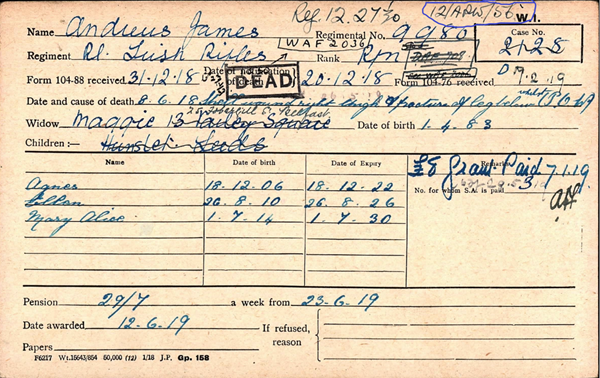 Ref. 12. 27/20 12/APW/56. W.I.
Name Andrews James Regimental No. 9980 Case No.
WAF 2036 2/28
Regiment Rl. Irish Rifles Rank Rfn
D 17.2.19
Form 104-88 received 31.12.18 Date of notification of death 20.12.18 Form 104-76 received
DEAD
Date and cause of death 8.6.18 Shot wound right thigh & fracture of leg below whilst P.O.W
Widow Maggie Bailey Square Date of birth 1.4.83
Children:— Hunslet Leeds
Name Date of birth Date of Expiry Remarks
£8 Grant Paid 7.1.19
No. for whom S.A. is paid 3
Agnes 18.12.06 18.12.22
Ellen 26.8.10 26.8.26
Mary Alice 1.7.14 1.7.30
Pension 29/7 a week from 23-6-19
Date awarded 12-6-19 If refused, reason
Papers
F6217 Wt.15643/854 50,000 (12) 1/18 J.P. Gp. 158